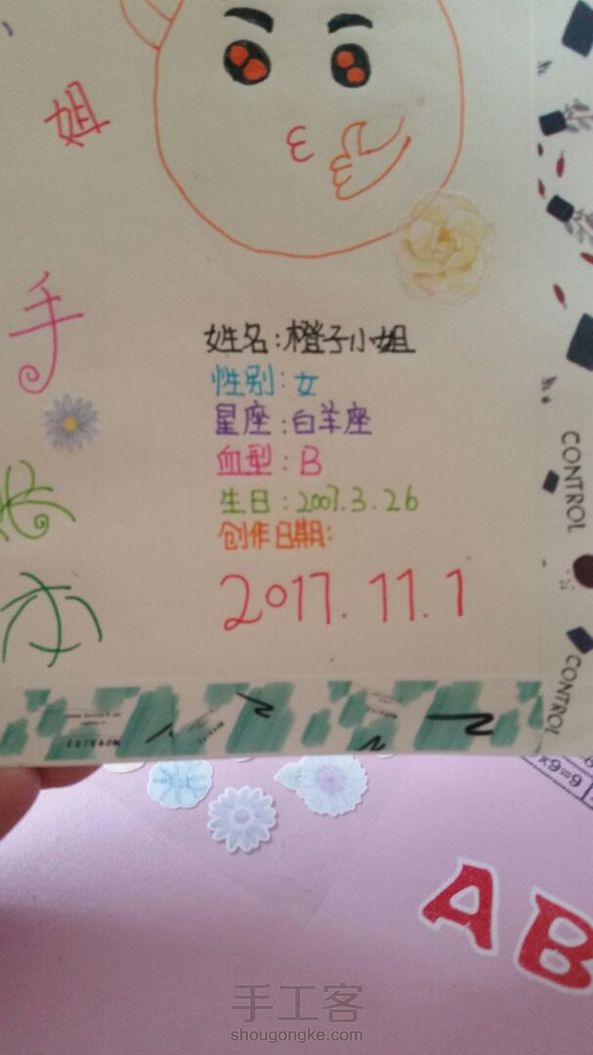 姐
手
帐
本
姓名:橙子小姐
性别:女
星座:白羊座
血型:B
生日:2007.3.26
创作日期:
2017.11.1
CONTROL
CONTROL
AB
手工客
shougongke.com